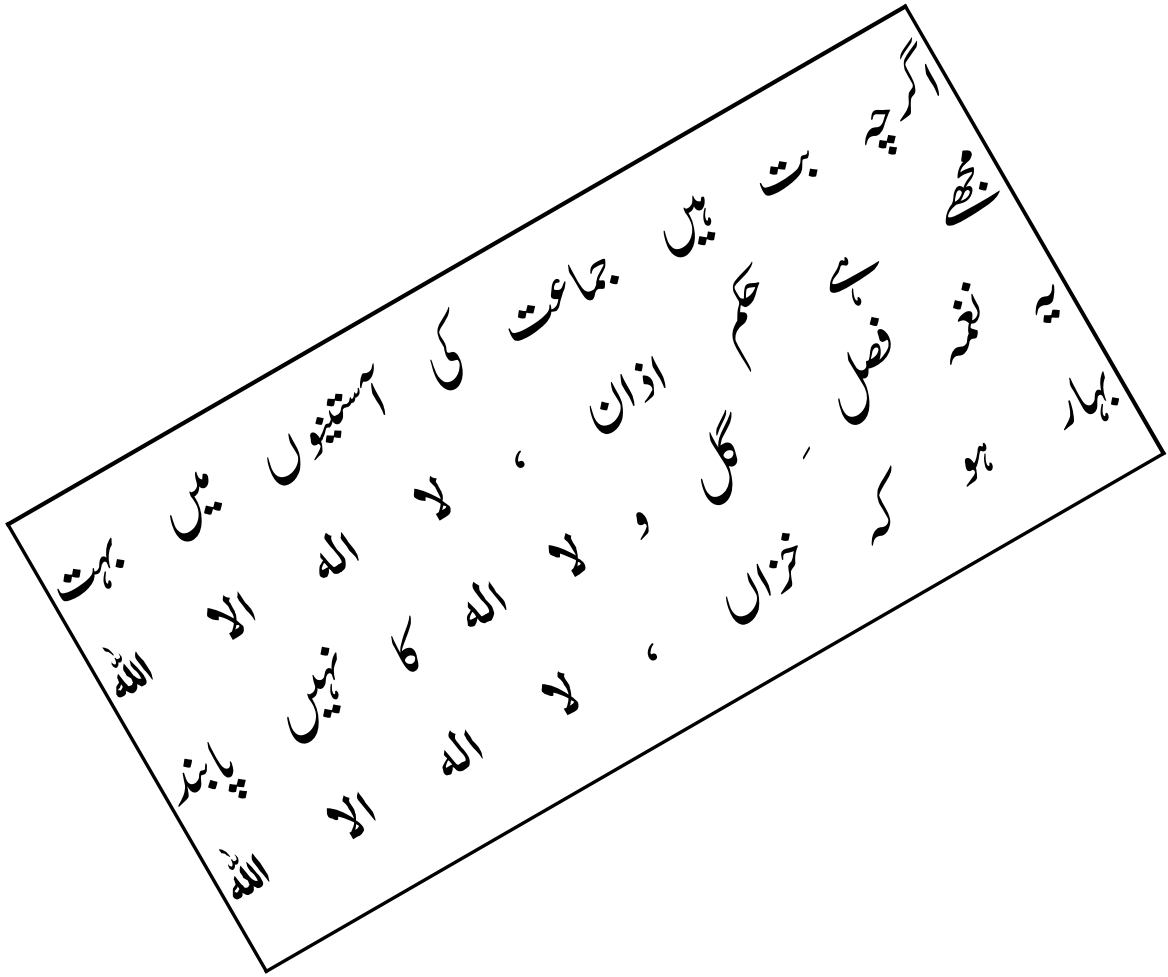 اگرچہ بت ہیں جماعت کی آستینوں میں بہت
مجھے ہے حکم اذان ، لا الہ الا اللہ
یہ نغمہ فصل ِ گل و لا الہ کا نہیں پابند
بہار ہو کہ خزاں ، لا الہ الا اللہ